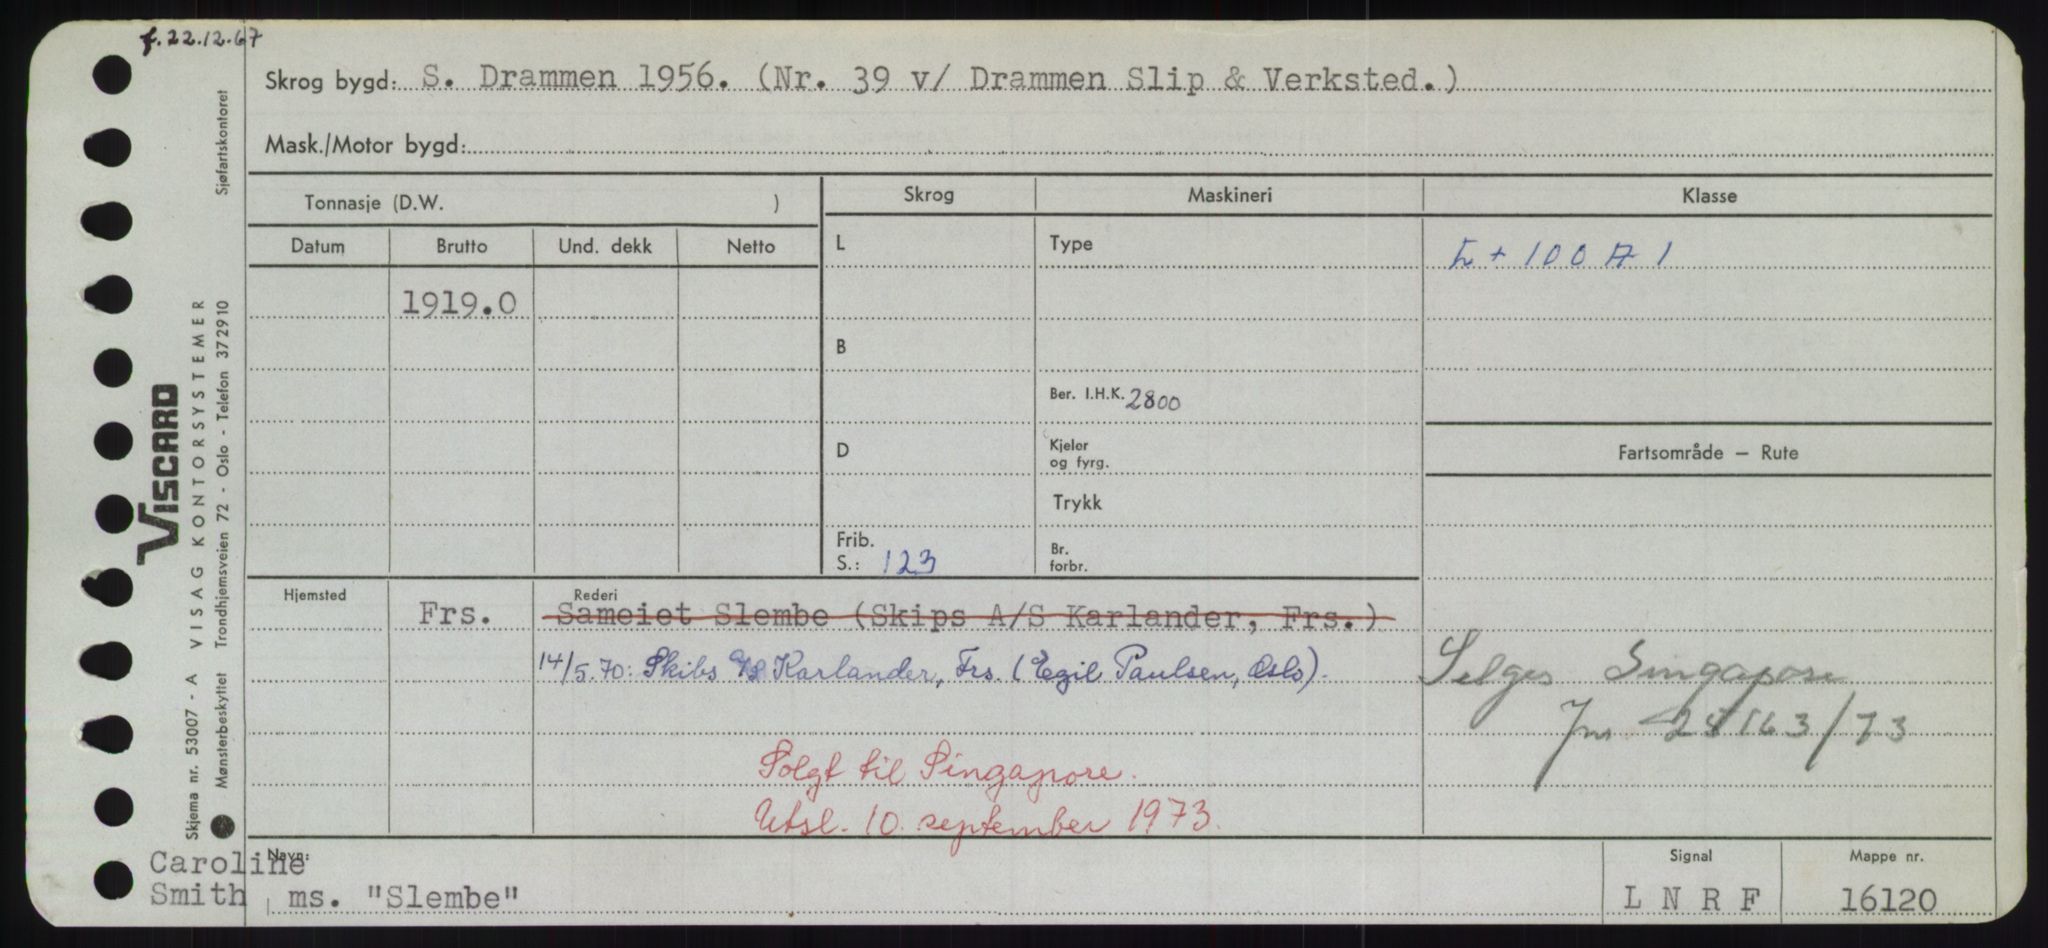 f. 22.12.67
Skrog bygd: S. Drammen 1956. (Nr. 39 v/ Drammen Slip & Verksted.)
Mask./Motor bygd:
Tonnasje (D.W. )
Skrog
Maskineri
Klasse
Datum
Brutto
Und. dekk
Netto
L
Type
L + 100 A 1
1919.0
B
Ber. I.H.K. 2800
D
Kjeler
og fyrg.
Fartsområde — Rute
Trykk
Frib.
S.: 123
Br.
forbr.
Hjemsted
Rederi
Frs.
Sameiet Slembe (Skips A/S Karlander, Frs.)
14/5.70: Skibs A/S Karlander, Frs. (Egil Paulsen, Oslo).
Selges Singapore
Jnr 28163/73
Solgt til Singapore.
Utsl. 10. september 1973.
Navn:
Caroline
Smith
ms. "Slembe"
Signal
L N R F
Mappe nr.
16120
VISCARD
Skjema nr. 53007 - A VISAG KONTORSYSTEMER
Mønsterbeskyttet Trondhjemsveien 72 - Oslo - Telefon 372910 Sjøfartskontoret